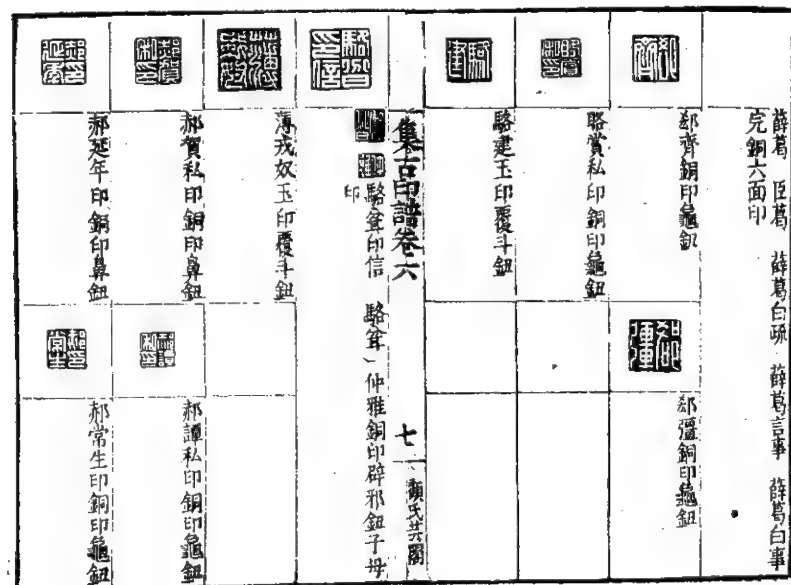 薛葛 臣葛 薛葛白疏 薛葛言事 薛葛白事
完銅六面印
郄齊銅印龜鈕
郄彊銅印龜鈕
賞私印銅印龜鈕
駱建玉印覆斗鈕
集古印譜卷六 七 顧氏芸閣
駱印信 駱 仲雅銅印辟邪鈕子母
印
薄戎奴玉印覆斗鈕
郝賀私印銅印鼻鈕
郝譚私印銅印龜鈕
郝延年印銅印鼻鈕
郝常生印銅印龜鈕